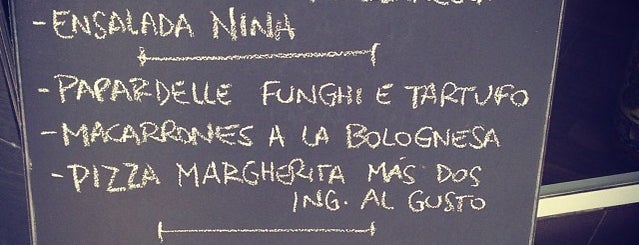 -ENSALADA NINA
-PAPARDELLE FUNGHI E TARTUFO
-MACARRONES A LA BOLOGNESA
-PIZZA MARGHERITA MÁS DOS
ING. AL GUSTO